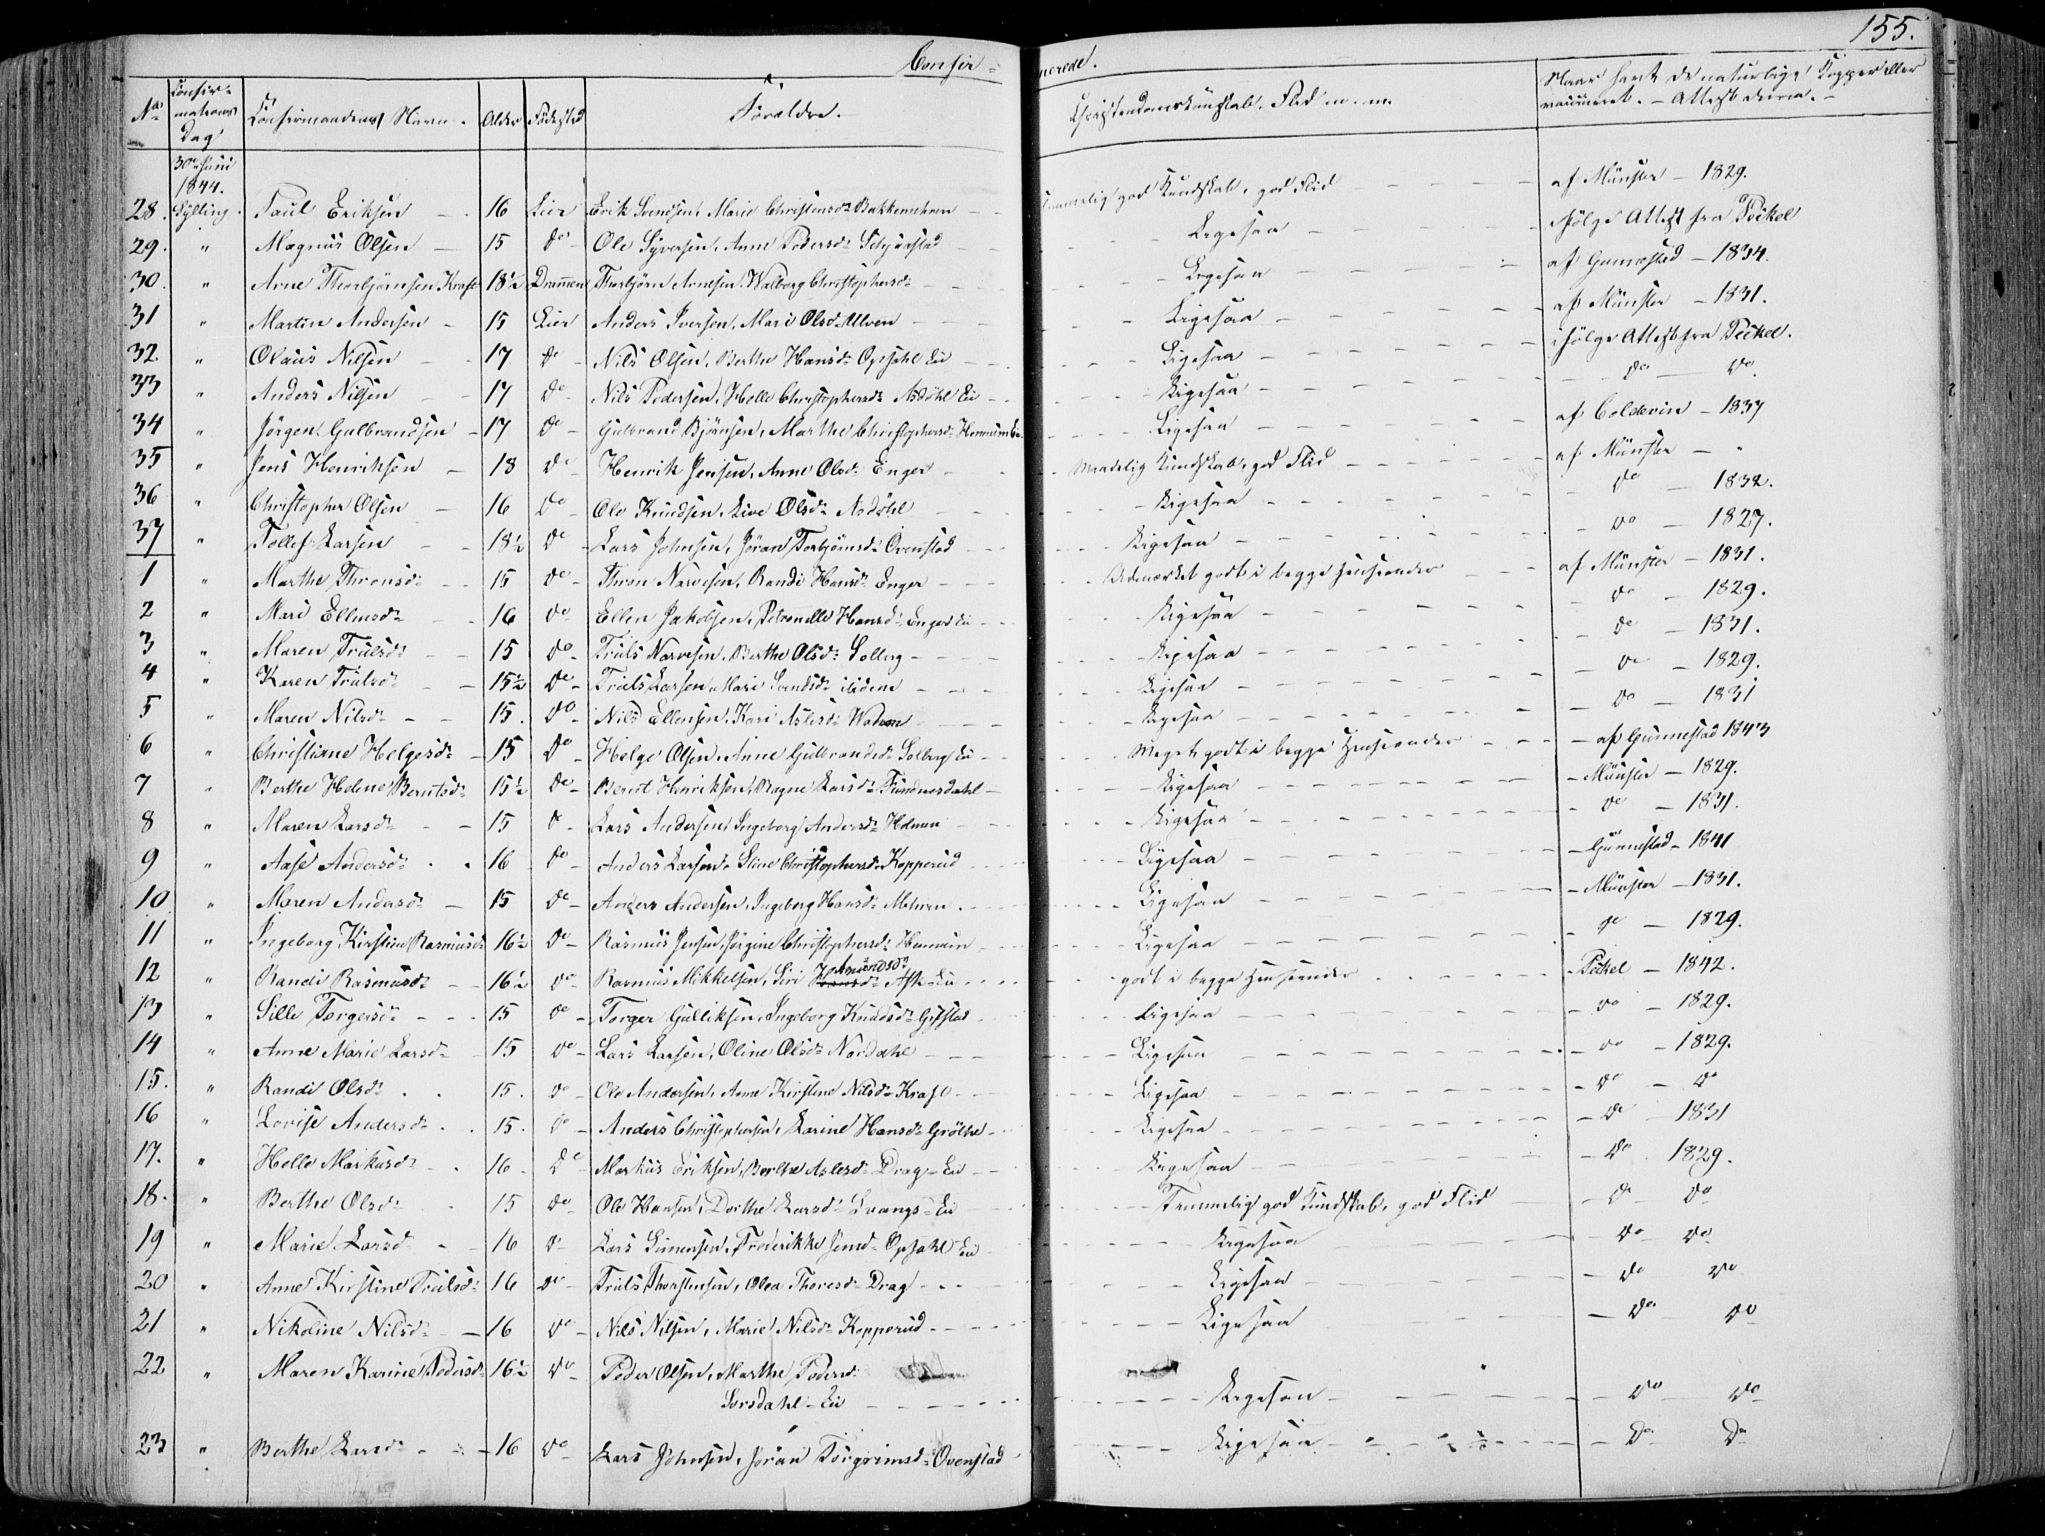 155.
Confir=merede.
No Confirmations Dag Confirmandens Navn. Alder Födested Forældre. Christendomskundskab, Flid m. m. Naar havt de naturlige Kopper eller vaccineret. — Attest derom. —
30te Juni
1844.
28. Sylling. Paul Eriksen 16 Lier Erik Svendsen, Marie Christensd: temmelig god Kundskab, god Flid af Münster — 1829.
29. " Magnus Olsen 15 do Ole Syversen, Anne Pedersd: Ligesaa ifölge Attest fra Peckel
30. " Arne Thorbjörnsen Kraft 18½ Drammen Thorbjörn Arnesen, Walborg Christophersd: Ligesaa af Gunnestad — 1834.
31 " Martin Andersen 15 Lier Anders Iversen, Mari Olsd: Ulven Ligesaa af Münster — 1831.
32 " Olaus Nilsen 17 do Nils Olsen, Berthe Hansd: Opsahl Ei Ligesaa ifölge Attest fra Peckel.
33 " Anders Nilsen 17 do Nils Pedersen, Helle Christophersd: Asdöhl Ei Ligesaa do do
34 " Jörgen Gulbrandsen 17 do Gulbrand Björnsen, Marthe Christophersd: Hennum Ei Ligesaa af Coldevin — 1837
35 " Jens Henriksen 18 do Henrik Jensen, Anne Olsd: Enger Maadelig Kundskab, god Flid af Münster — "
36 " Christopher Olsen 16 do Ole Knudsen, Live Olsd: Asdöhl Ligesaa do — 1832.
37 " Tollef Larsen 18½ do Lars Johnsen, Jöran Torbjörnsd: Ovenstad Ligesaa do — 1827.
1 " Marthe Thronsd: 15 do Thron Narvesen, Randi Hansd: Enger Udmærket godt i begge Henseender af Münster — 1831.
2 " Mari Ellensd: 16 do Ellen Jakobsen, Petronelle Hansd: Enger Ei Ligesaa do — 1829.
3 " Maren Trulsd: 15 do Truls Narvesen, Berthe Olsd: Solberg Ligesaa do — 1831.
4 " Karen Trulsd: 15½ do Truls Larsen, Mari Svendsd: ibidem Ligesaa do — 1829.
5 " Maren Nilsd: 15. do Nils Ellensen, Kari Aslesd: Ligesaa do — 1831
6 " Christiane Helgesd: 15 do Helge Olsen, Anne Gulbrandsd: Solberg Ei Meget godt i begge Henseender af Gunnestad 1843
7 " Berthe Helene Berntsd: 15½ do Bernt Henriksen, Ragne Larsd: Ligesaa Münster — 1829.
8 " Maren Larsd: 15 do Lars Andersen, Ingeborg Andersd: Ligesaa do — 1831.
9 " Aase Andersd: 16 do Anders Larsen, Stine Christophersd: Kopperud Ligesaa Gunnestad — 1841
10 " Maren Andersd: 15 do Anders Andersen, Ingeborg Hansd: Ligesaa Münster — 1831.
11 " Ingeborg Kirstine Rasmusd: 16½ do Rasmus Jensen, Jörgine Christophersd: Hennum Ligesaa do — 1829.
12 " Randi Rasmusd: 16½ do Rasmus Mikkelsen, Siri Hansd: Amundsd: Ask Ei godt i begge Henseender Peckel — 1842.
13 " Sille Torgersd: 15 do Torger Gulliksen, Ingeborg Knudsd: Gifstad Ligesaa do — 1829.
14 " Anne Marie Larsd: 15 do Lars Larsen, Oline Olsd: Nordahl Ligesaa do — 1829.
15. " Randi Olsd: 15. do Ole Andersen, Anne Kirstine Nilsd: Kraft Ligesaa do — do
16 " Lovise Andersd: 15. do Anders Christophersen, Karine Hansd: Ligesaa do — 1831
17. " Helle Markusd: 16 do Markus Eriksen, Berthe Aslesd: Drag — Ei Ligesaa do 1829.
18. " Berthe Olsd: 15 do Ole Hansen, Dorthe Larsd: Svangs — Ei Temmelig god Kundskab, god Flid do do
19 " Marie Larsd: 16 do Lars Simensen, Frederikke Opsahl Ei Ligesaa do do
20 " Anne Kirstine Trulsd: 16 do Truls Thorstensen, Olea Thoresd: Drag Ligesaa do do
21 " Nikoline Nilsd: 16 do Nils Nilsen, Marie Nilsd: Kopperud Ligesaa do do
22 " Maren Karine Pedersd: 16½ do Peder Olsen, Marthe Pedersd:
Sörsdahl — Ei Ligesaa do do
23 " Berthe Larsd: 16 do Lars Johnsen, Jöran Torgrimsd: Ovenstad Ligesaa do do